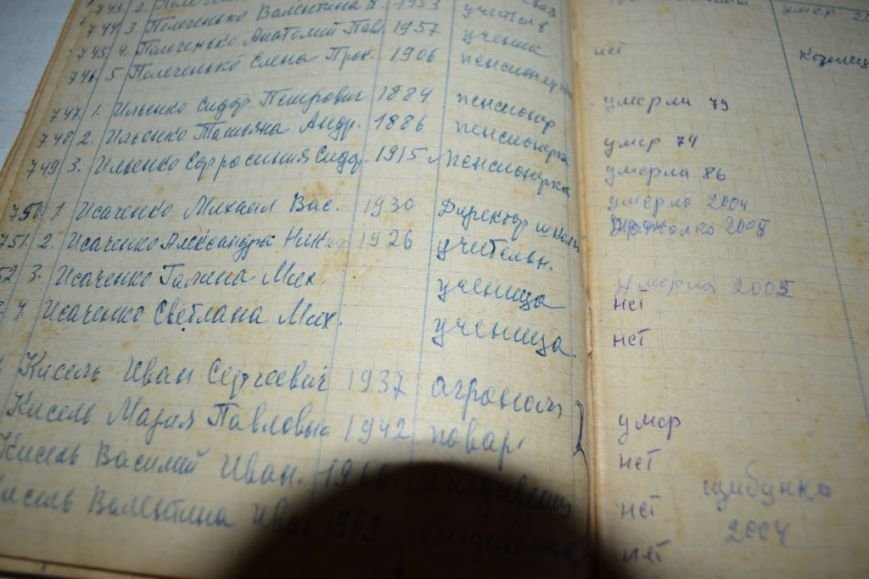 743 2.
744 3. Полченко Валентина 1953 умер
745 4. Полченко Анатолий Пав. 1957 ученик
746 5. Полченко Елена Прок. 1906 пенсионерка нет
747 1. Ильенко Сидор Петрович 1884 пенсионер умерли 79
748 2. Ильенко Татьяна Андр. 1886 пенсионерка умер 74
749 3. Ильенко Ефросиния Сидр. 1915 пенсионерка умерла 86
умерла 2004
750 1 Исаченко Михаил Вас. 1930 Директор школы 2005
751. 2. Исаченко Александра Никиф 1926 учительн.
52 3. Исаченко Галина Мих. ученица умерла 2005
нет
4. Исаченко Светлана Мих. ученица нет
Кисель Иван Сергеевич 1937 агроном умер
Кисель Мария Павловн 1942 повар нет
Кисель Василий Иван. 1960 иждивенец нет щибунка
Кисель Валентина Иван 1969 нет 2004